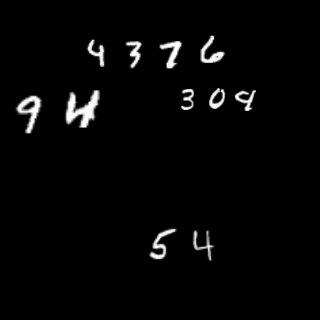 4376
94
304
54